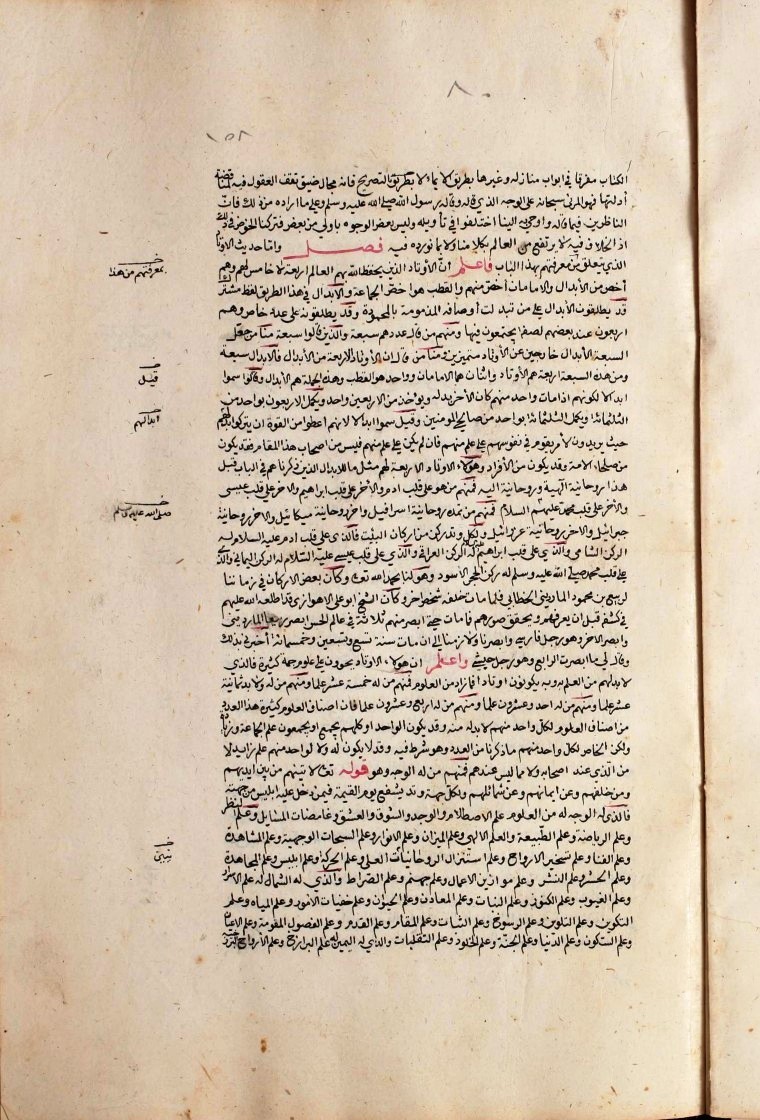 ٨٠
١٥٨
الكتاب مفرقا في ابواب منازله وغيرها بطريق الايماء لا بطريق التصريح فانه مجال ضيق تقف العقول فيه لمناقضته
ادلتها فهو المرئ سبحانه على الوجه الذي قاله وقاله رسول الله صلى الله عليه وسلم وعلى ما اراده من ذلك فان
الناظرين فيما قاله واوحى به الينا اختلفوا في تأويله وليس بعض الوجوه باولى من بعض فتركنا الخوض في ذلك
اذ الخلاف فيه لا يرتفع من العالم بكلامنا ولا بما نورده فيه فصل واما حديث الاوتاد
الذي يتعلق من معرفتهم بهذا الباب فاعلم ان الاوتاد الذين يحفظ الله بهم العالم اربعة لا خامس لهم وهم
اخص من الابدال والامامان اخص منهم والقطب هو اخص الجماعة والابدال في هذا الطريق لفظ مشترك
قد يطلقون الابدال على من تبدلت اوصافه المذمومة بالمحمودة وقد يطلقونه على عدد خاص وهم
اربعون عند بعضهم لصفة يجتمعون فيها ومنهم من قال عددهم سبعة والذين قالوا سبعة منا من جعل
السبعة الابدال خارجين عن الاوتاد متميزين ومنا من قال ان الاوتاد الاربعة من الابدال فالابدال سبعة
ومن هذه السبعة اربعة هم الاوتاد واثنان هما الامامان وواحد هو القطب وهذه الجملة هم الابدال وقالوا سموا
ابدالا لكونهم اذا مات واحد منهم كان الآخر بدله ويؤخذ من الاربعين واحد ويكمل الاربعون بواحد من
الثلثمائة ويكمل الثلثمائة بواحد من صالحي المؤمنين وقيل سموا ابدالا لانهم اعطوا من القوة ان يتركوا بدلهم
حيث يريدون لامر يقوم في نفوسهم على علم منهم فان لم يكن على علم منهم فليس من اصحاب هذا المقام فقد يكون
من صلحاء الامة وقد يكون من الافراد وهؤلاء الاوتاد الاربعة لهم مثل ما للابدال الذين ذكرناهم في الباب قبل
هذا روحانية الهية وروحانية الية فمنهم من هو على قلب ادم والآخر على قلب ابراهيم والآخر على قلب عيسى
والآخر على قلب محمد عليهم السلام فمنهم من تمده روحانية اسرافيل وآخر روحانية ميكائيل والآخر روحانية
جبرائيل والآخر روحانية عزرائيل ولكل وتد ركن من اركان البيت فالذي على قلب ادم عليه السلام له
الركن الشامي والذي على قلب ابراهيم له الركن العراقي والذي على قلب عيسى عليه السلام له الركن اليماني والذي
على قلب محمد صلى الله عليه وسلم له ركن الحجر الاسود وهو لنا بحمد الله تعالى وكان بعض الاركان في زماننا
لربيع بن محمود الماردينى الحطابي فلما مات خلفه شخص آخر وكان الشيخ ابو علي الاهوازي قد اطلعه الله عليهم
في كشفه قبل ان يعرفهم وتحقق صورهم فما مات حتى ابصر منهم ثلاثة في عالم الحس ابصر ربيعا الماردينى
وابصر الآخر وهو رجل فارسي وابصرنا ولازمنا الى ان مات سنة تسع وتسعين وخمسمائة أخبرني بذلك
وقال لي ما ابصرت الرابع وهو رجل حبشي واعلم ان هؤلاء الاوتاد يحوون على علوم جمة كثيرة فالذي
لا بد لهم من العلم به وبه يكونون اوتادا فما زاد من العلوم فمنهم من له خمسة عشر علما ومنهم من له ولا بد ثمانية
عشر علما ومنهم من له احد وعشرون علما ومنهم من له اربع وعشرون علما فان اصناف العلوم كثيرة هذا العدد
من اصناف العلوم لكل واحد منهم لا بد له منه وقد يكون الواحد او كلهم يجمع او يجمعون علم الجماعة وزيادة
ولكن الخاص لكل واحد منهم ما ذكرنا من العدد وهو شرط فيه وقد لا يكون له ولا لواحد منهم علم زايد لا
من الذي عند اصحابه ولا مما ليس عندهم فمنهم من له الوجه وهو قوله تعالى لاتينهم من بين ايديهم
ومن خلفهم وعن ايمانهم وعن شمائلهم ولكل جهة وتد يشفع يوم القيمة فيمن دخل عليه ابليس من جهته
فالذي له الوجه له من العلوم علم الاصطلام والوجد والشوق والعشق وغامضات المسايل وعلم النظر
وعلم الرياضة وعلم الطبيعة والعلم الالهي وعلم الميزان وعلم الانوار وعلم السبحات الوجهية وعلم المشاهدة
وعلم الفنا وعلم تسخير الارواح وعلم استنزال الروحانيات العلى وعلم الحركة وعلم ابليس وعلم المجاهدة
وعلم الحشر وعلم النشر وعلم موازين الاعمال وعلم جهنم وعلم الصراط والذي له الشمال له علم الاسرار
وعلم الغيوب وعلم الكنوز وعلم النبات وعلم المعادن وعلم الحيوان وعلم خفيات الامور وعلم المياه وعلم
التكوين وعلم التلوين وعلم الرسوخ وعلم الثبات وعلم المقام وعلم القدم وعلم الفصول المقومة وعلم الاعيان
وعلم السكون وعلم الدنيا وعلم الجنة وعلم الخلود وعلم التقلبات والذي له اليمين له علم البرازخ وعلم الارواح البرزخية
بمعرفتهم من هذا
قيل
ابدالهم
صلى الله عليه وسلم